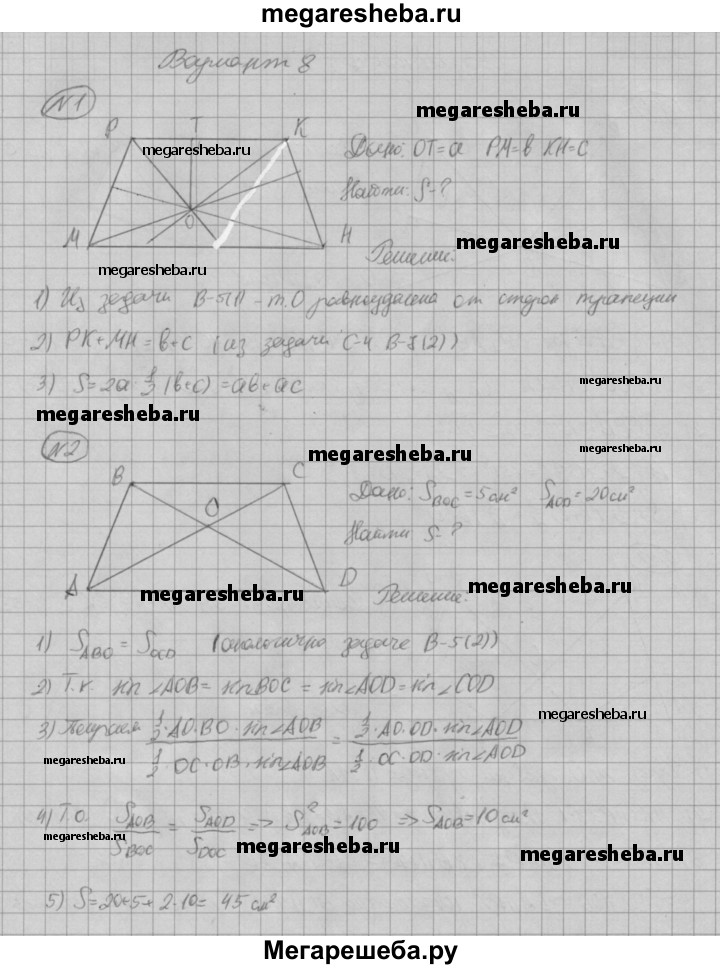 megaresheba.ru
Вариант 8
N1
P T K
megaresheba.ru
megaresheba.ru
Дано: OT=a PM=b KH=c
Найти: S-?
O
M H
megaresheba.ru
Решение:
megaresheba.ru
1) Из задачи B-5(1) - т.O равноудалена от сторон трапеции
2) PK+MH=b+c (из задачи C-4 B-7(2))
3) S=2a·½(b+c)=ab+ac
megaresheba.ru
megaresheba.ru
N2
megaresheba.ru
megaresheba.ru
B C
O
Дано: S BOC = 5 см² S AOD = 20 см²
Найти S-?
A D
megaresheba.ru
megaresheba.ru
Решение:
1) S ABO = S OCD (аналогично задаче B-5(2))
2) Т.к. ∠AOB= BOC = ∠AOD= ∠COD
megaresheba.ru
3) ½·AO·BO· ∠AOB / ½·OC·OB· ∠AOB = ½·AO·OD· ∠AOD / ½·OC·OD· ∠AOD
megaresheba.ru
4) Т.о. S AOB / S BOC = S AOD / S DOC => S² AOB = 100 => S AOB = 10 см²
megaresheba.ru
megaresheba.ru
megaresheba.ru
5) S=20+5+2·10= 45 см²
Мегарешеба.ру